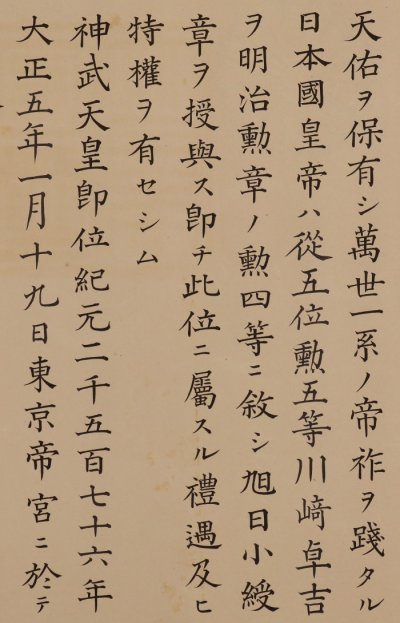 天佑ヲ保有シ萬世一系ノ帝祚ヲ踐タル
日本國皇帝ハ從五位勲五等川﨑卓吉
ヲ明治勲章ノ勲四等ニ敘シ旭日小綬
章ヲ授與ス卽チ此位ニ屬スル禮遇及ヒ
特權ヲ有セシム
神武天皇卽位紀元二千五百七十六年
大正五年一月十九日東京帝宮ニ於テ